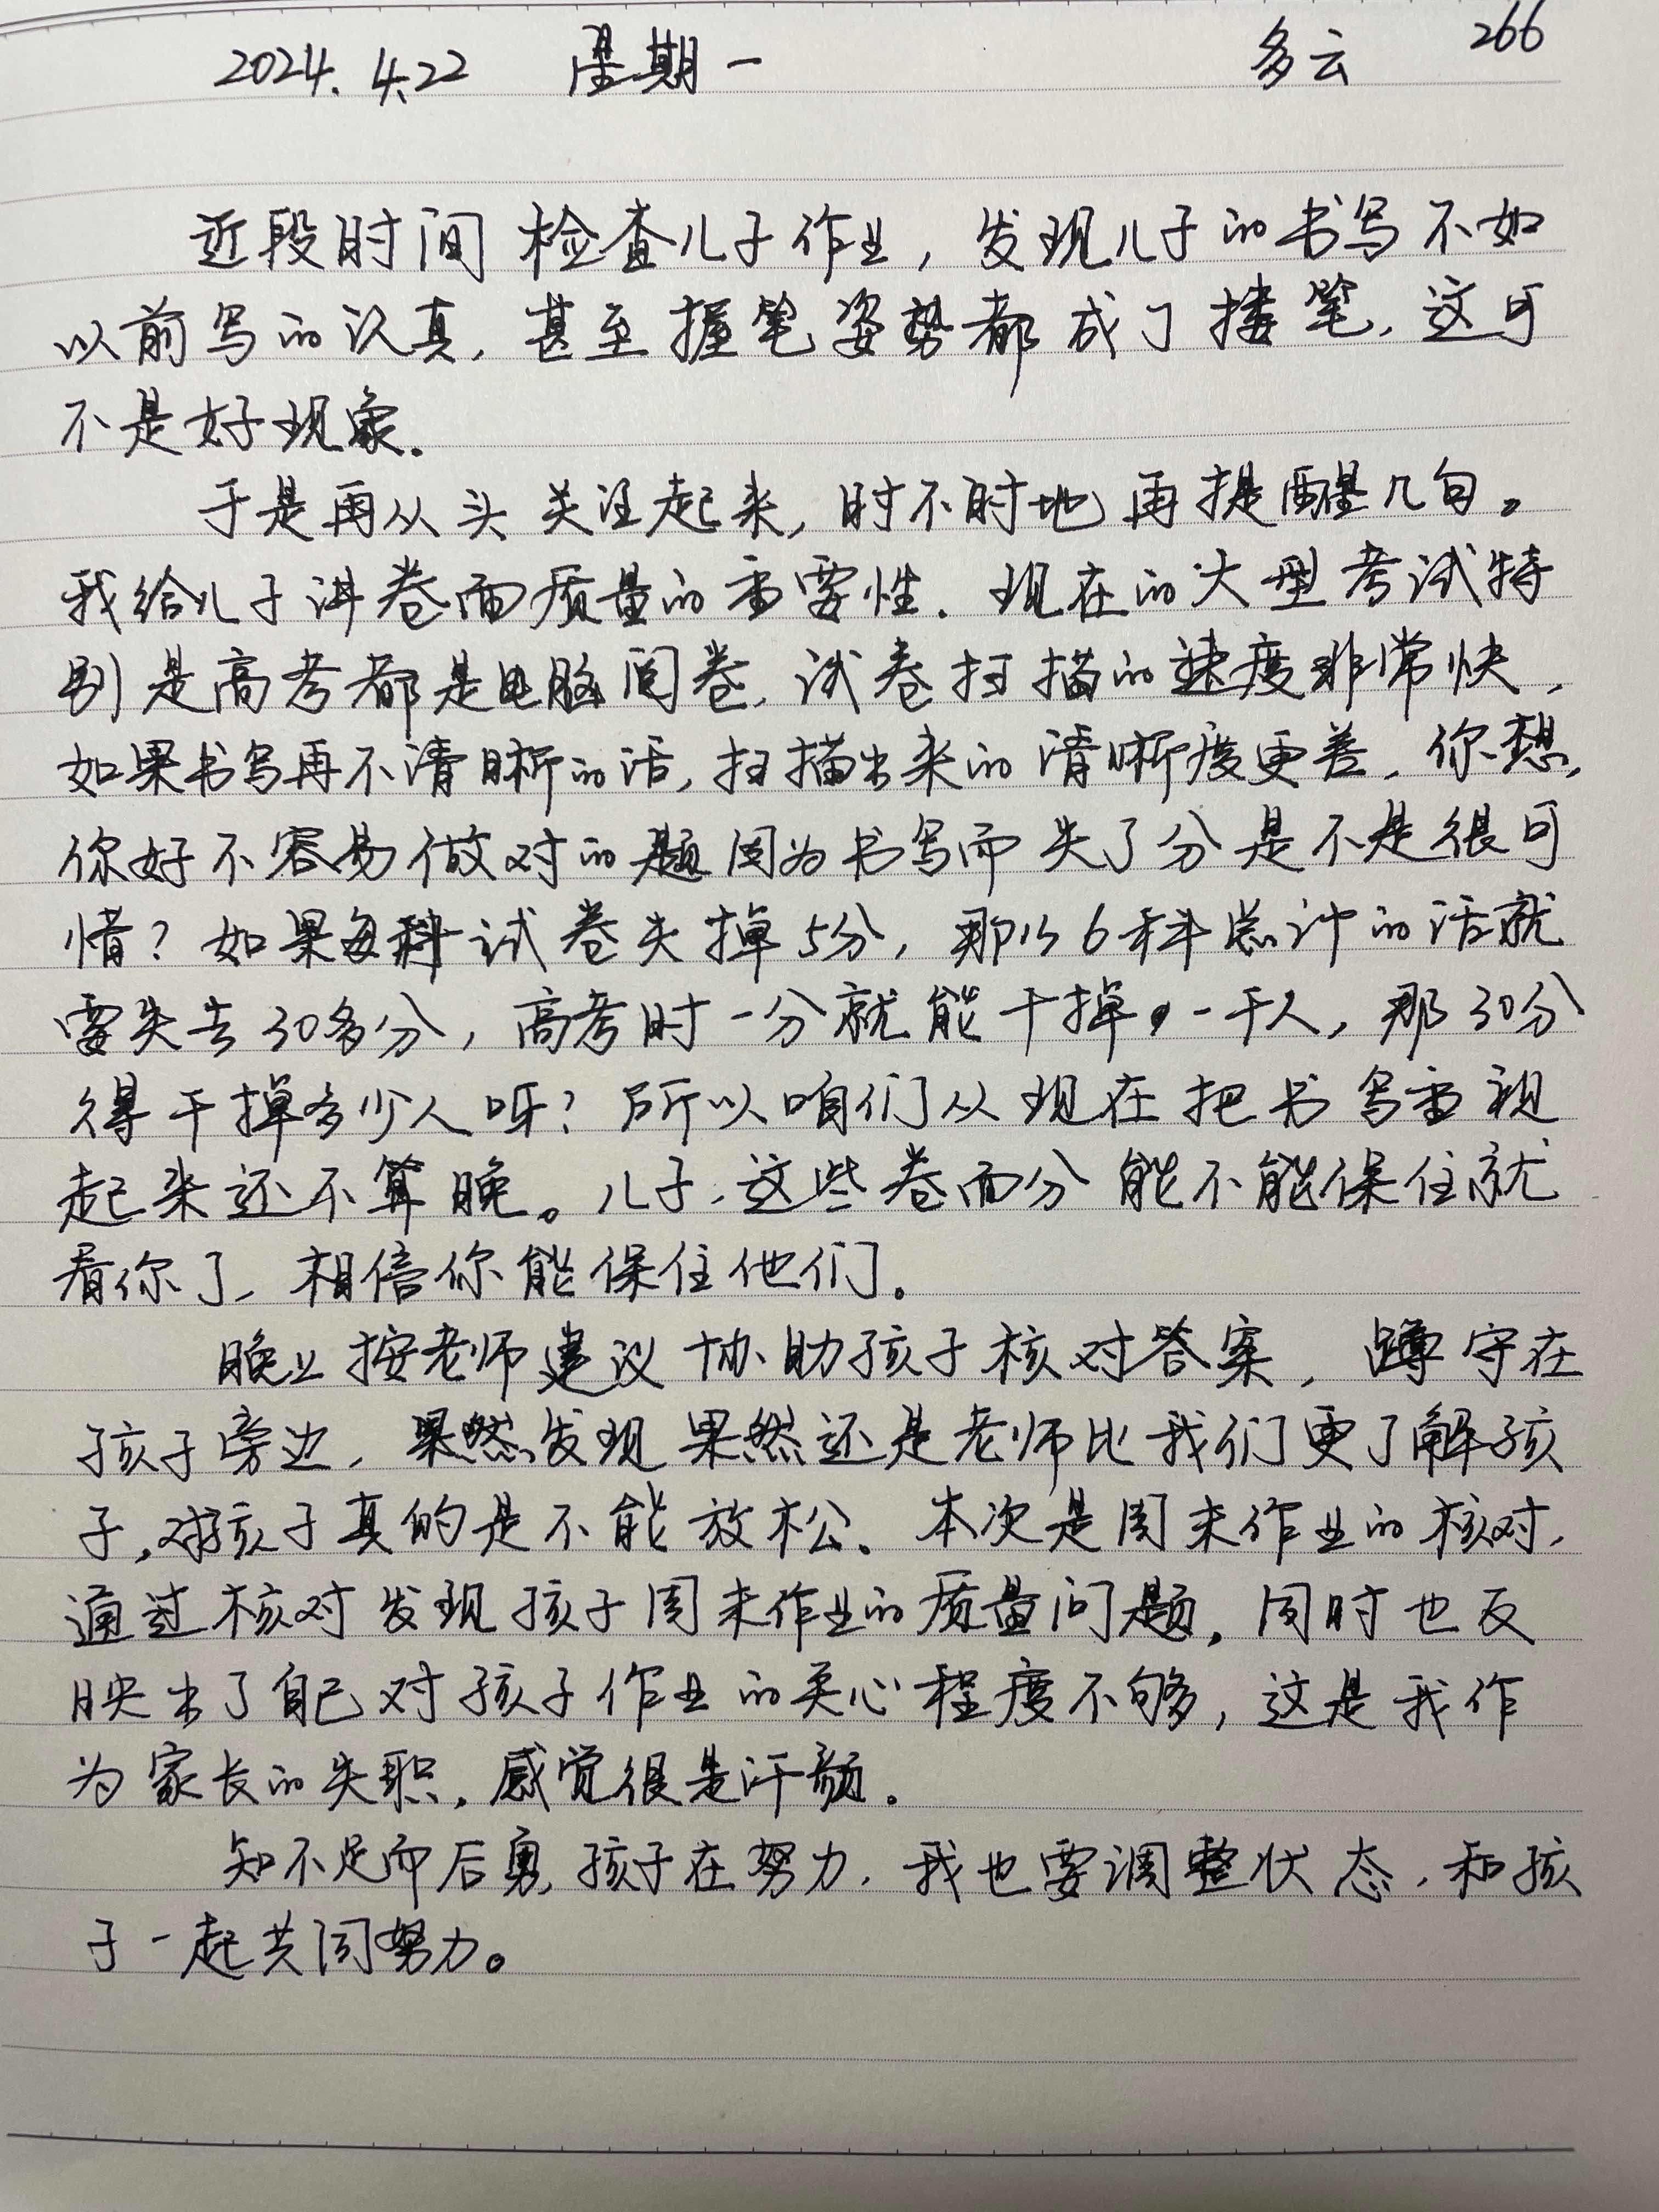 2024.4.22 星期一 多云 266
近段时间检查儿子作业，发现儿子的书写不如
以前写的认真，甚至握笔姿势都成了搂笔，这可
不是好现象.
于是再从头关注起来，时不时地再提醒几句。
我给儿子讲卷面质量的重要性.现在的大型考试特
别是高考都是电脑阅卷,试卷扫描的速度非常快，
如果书写再不清晰的话,扫描出来的清晰度更差，你想,
你好不容易做对的题因为书写而失了分是不是很可
惜？如果每科试卷失掉5分，那么6科总计的话就
要失去30多分，高考时一分就能干掉一千人，那30分
得干掉多少人呀？所以咱们从现在把书写重视
起来还不算晚。儿子,这些卷面分能不能保住就
看你了，相信你能保住他们。
晚上按老师建议协助孩子核对答案，蹲守在
孩子旁边，果然发现果然还是老师比我们更了解孩
子,对孩子真的是不能放松。本次是周末作业的核对,
通过核对发现孩子周末作业的质量问题，同时也反
映出了自己对孩子作业的关心程度不够，这是我作
为家长的失职，感觉很是汗颜。
知不足而后勇,孩子在努力，我也要调整状态，和孩
子一起共同努力。